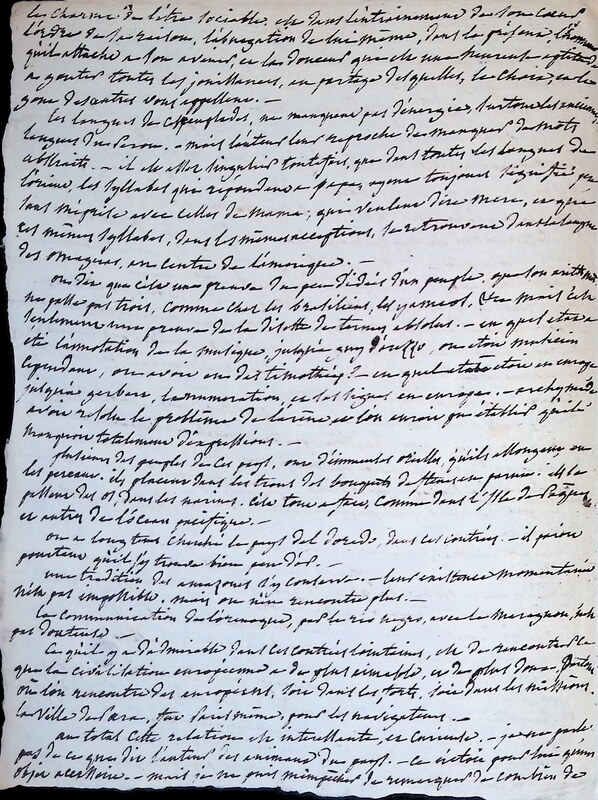 le charme de l'être sociable, est dans l'entrainement de son cœur
l'ordre de sa raison, l'abnégation de lui même, dans la présence, l'homme
qu'il attache a son avenir, et la douceur que est une heureuse aptitude
a gouter toutes les jouissances, en partage desquelles, le choix, et le
gout des autres vous appellent. —
les langues de ces peuplades, ne manquent pas d'énergie, surtout les anciennes
langues du Perou. — mais l'auteur leur reproche de manquer de mots
abstraits. — il est assez singulier toutefois, que dans toutes les langues de
l'orient, les syllabes que repondent a papa, ayent toujours signifié père
sans méprise avec celles de mama, qui veulent dire mere, et que
ces mêmes syllabes, dans les mêmes acceptions, se retrouvent dans la langue
des omaguas, au centre de l'amérique. —
on dit que c'est une preuve du peu d'idées d'un peuple, que son arithm.
ne passe pas trois, comme chez les brasiliens, les yameos, &c mais c'est
seulement une preuve de la disette de termes absolus. — en quel état a
été la notation de la musique, jusqu'à guy d'arezzo, on étoit musicien
cependant, on avoit eu des timothée. — en quel état étoit en europe
jusqu'à gerbert, la numération, et les signes en europe, — archymède
avoit résolu le problème de l'arène et l'on auroit pu établir qu'il
manquoit totalement d'expressions. —
plusieurs des peuples de ces pays, ont d'immenses oreilles, qu'ils allongent en
les perçant. ils placent dans les trous des bouquets de fleurs en parure. ils se
passent des os, dans les narines. c'est tout a fait, comme dans l'isle de Pâques
et autres de l'océan pacifique. —
on a longtems cherché le pays del dorado, dans ces contrées. — il paroit
pourtant qu'il s'y trouve bien peu d'or. —
une tradition des amazones s'y conserve. — leur existence momentanée
n'est pas impossible. mais on n'en rencontre plus. —
la communication de l'orenoque, par le rio negro, avec le Maragnon, n'est
pas douteuse. —
Ce qu'il y a d'admirable dans ces contrées lointaines, est de rencontrer ce
que la civilisation européenne a de plus aimable, et de plus doux, partout
où l'on rencontre des européens, soit dans les forts, soit dans les missions.
la ville de Para, fut Paris même, pour les navigateurs. —
au total cette relation est interessante, et curieuse. — je ne parle
pas de ce que dit l'auteur des animaux du pays. — ce n'étoit pour lui qu'un
objet accessoire. — mais je ne puis m'empêcher de remarquer de combien de